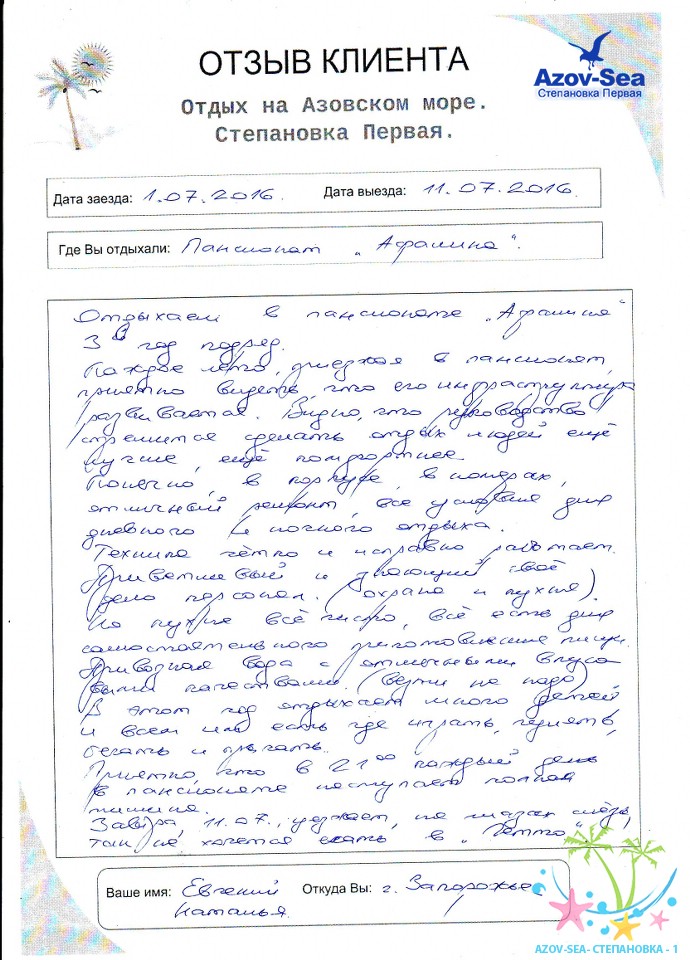 ОТЗЫВ КЛИЕНТА
Azov-Sea
Степановка Первая
Отдых на Азовском море.
Степановка Первая.
Дата заезда: 1.07.2016. Дата выезда: 11.07.2016.
Где Вы отдыхали: Пансионат „Афалина".
Отдыхаем в пансионате „Афалина"
3й год подряд.
Каждое лето, приезжая в пансионат,
приятно видеть, что его инфраструктура
развивается. Видно, что руководство
стремится сделать отдых людей ещё
лучше, ещё комфортнее.
Конечно, в корпусе, в номерах,
отличный ремонт, все условия для
дневного и ночного отдыха.
Техника чётко и исправно работает.
Приветливый и знающий своё
дело персонал. (охрана и кухня).
На кухне всё чисто, всё есть для
самостоятельного приготовления пищи.
Привозная вода с отличными вкусо
выми качествами. (везти не надо)
В этом год отдыхает много детей
и всем им есть где играть, гулять,
бегать и прыгать.
Приятно, что в 21 00 каждый день
в пансионате наступает полная
тишина.
Завтра, 11.07., уезжаем, на глазах слёзы,
так не хочется ехать в „Гетто".
Ваше имя: Евгений Откуда Вы: г. Запорожье
Наталья.
AZOV-SEA- СТЕПАНОВКА - 1